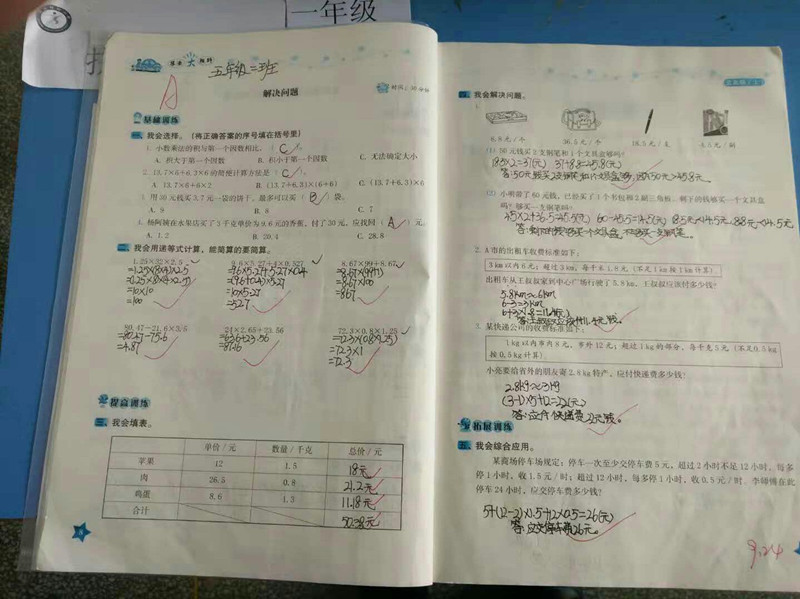 一年级
五年级二班
A
解决问题
基础训练
一、我会选择。（将正确答案的序号填在括号里）
1. 小数乘法的积与第一个因数相比，（ C ）。
A. 积大于第一个因数 B. 积小于第一个因数 C. 无法确定大小
2. 13.7×6+6.3×6的简便计算方法是（ C ）。
A. 13.7×6+6×2 B. (13.7+6.3)×(6+6) C. (13.7+6.3)×6
3. 用30元钱买3.7元一袋的饼干，最多可以买（ B ）袋。
A. 9 B. 8 C. 7
4. 杨阿姨在水果店买了3千克单价为9.6元的香蕉，付了30元，应找回（ A ）元。
A. 1.2 B. 20.4 C. 28.8
二、我会用递等式计算，能简算的要简算。
1.25×32×2.5 9.6×5.27+4×0.527 8.67×99+8.67
=1.25×(8×4)×2.5 =9.6×5.27+5.27×0.4 =8.67×(99+1)
=(1.25×8)×(4×2.5) =(9.6+0.4)×5.27 =8.67×100
=10×10 =10×5.27 =867
=100 =52.7
80.47-21.6×3.5 24×2.65+23.56 72.3×0.8×1.25
=80.47-75.6 =63.6+23.56 =72.3×(0.8×1.25)
=4.87 =87.16 =72.3×1
=72.3
提高训练
三、我会填表。
单价/元 数量/千克 总价/元
苹果 12 1.5 18元
肉 26.5 0.8 21.2元
鸡蛋 8.6 1.3 11.18元
合计 50.38元
四、我会解决问题。
1.
6.8元/个 36.5元/个 18.5元/支 8.5元/副
(1) 50元钱买2支钢笔和1个文具盒够吗？
(2) 小明带了60元钱，已经买了1个书包和2副三角板，剩下的钱够买一个文具盒
吗？够买一支钢笔吗？
2. A市的出租车收费标准如下：
3km以内6元；超过3km，每千米1.8元（不足1km按1km计算）
出租车从王叔叔家到中心广场行驶了5.8km，王叔叔应该付多少钱？
5.8km≈6km
6-3=3km
3. 某快递公司的收费标准如下：
1kg以内市内8元，市外12元；超过1kg的部分，每千克5元（不足0.5kg
按0.5kg计算）
小亮要给省外的朋友寄2.8kg特产，应付快递费多少钱？
2.8kg≈3kg
(3-1)×5+12=22(元)
答：应付快递费22元钱。
拓展训练
五、我会综合应用。
某商场停车场规定：停车一次至少交停车费5元，超过2小时不足12小时，每多
停1小时，收1.5元/时；超过12小时，每多停1小时，收0.5元/时。李师傅在此
停车24小时，应交停车费多少钱？
5+(12-2)×1.5+12×0.5=26(元)
答：应交停车费26元。
9.24